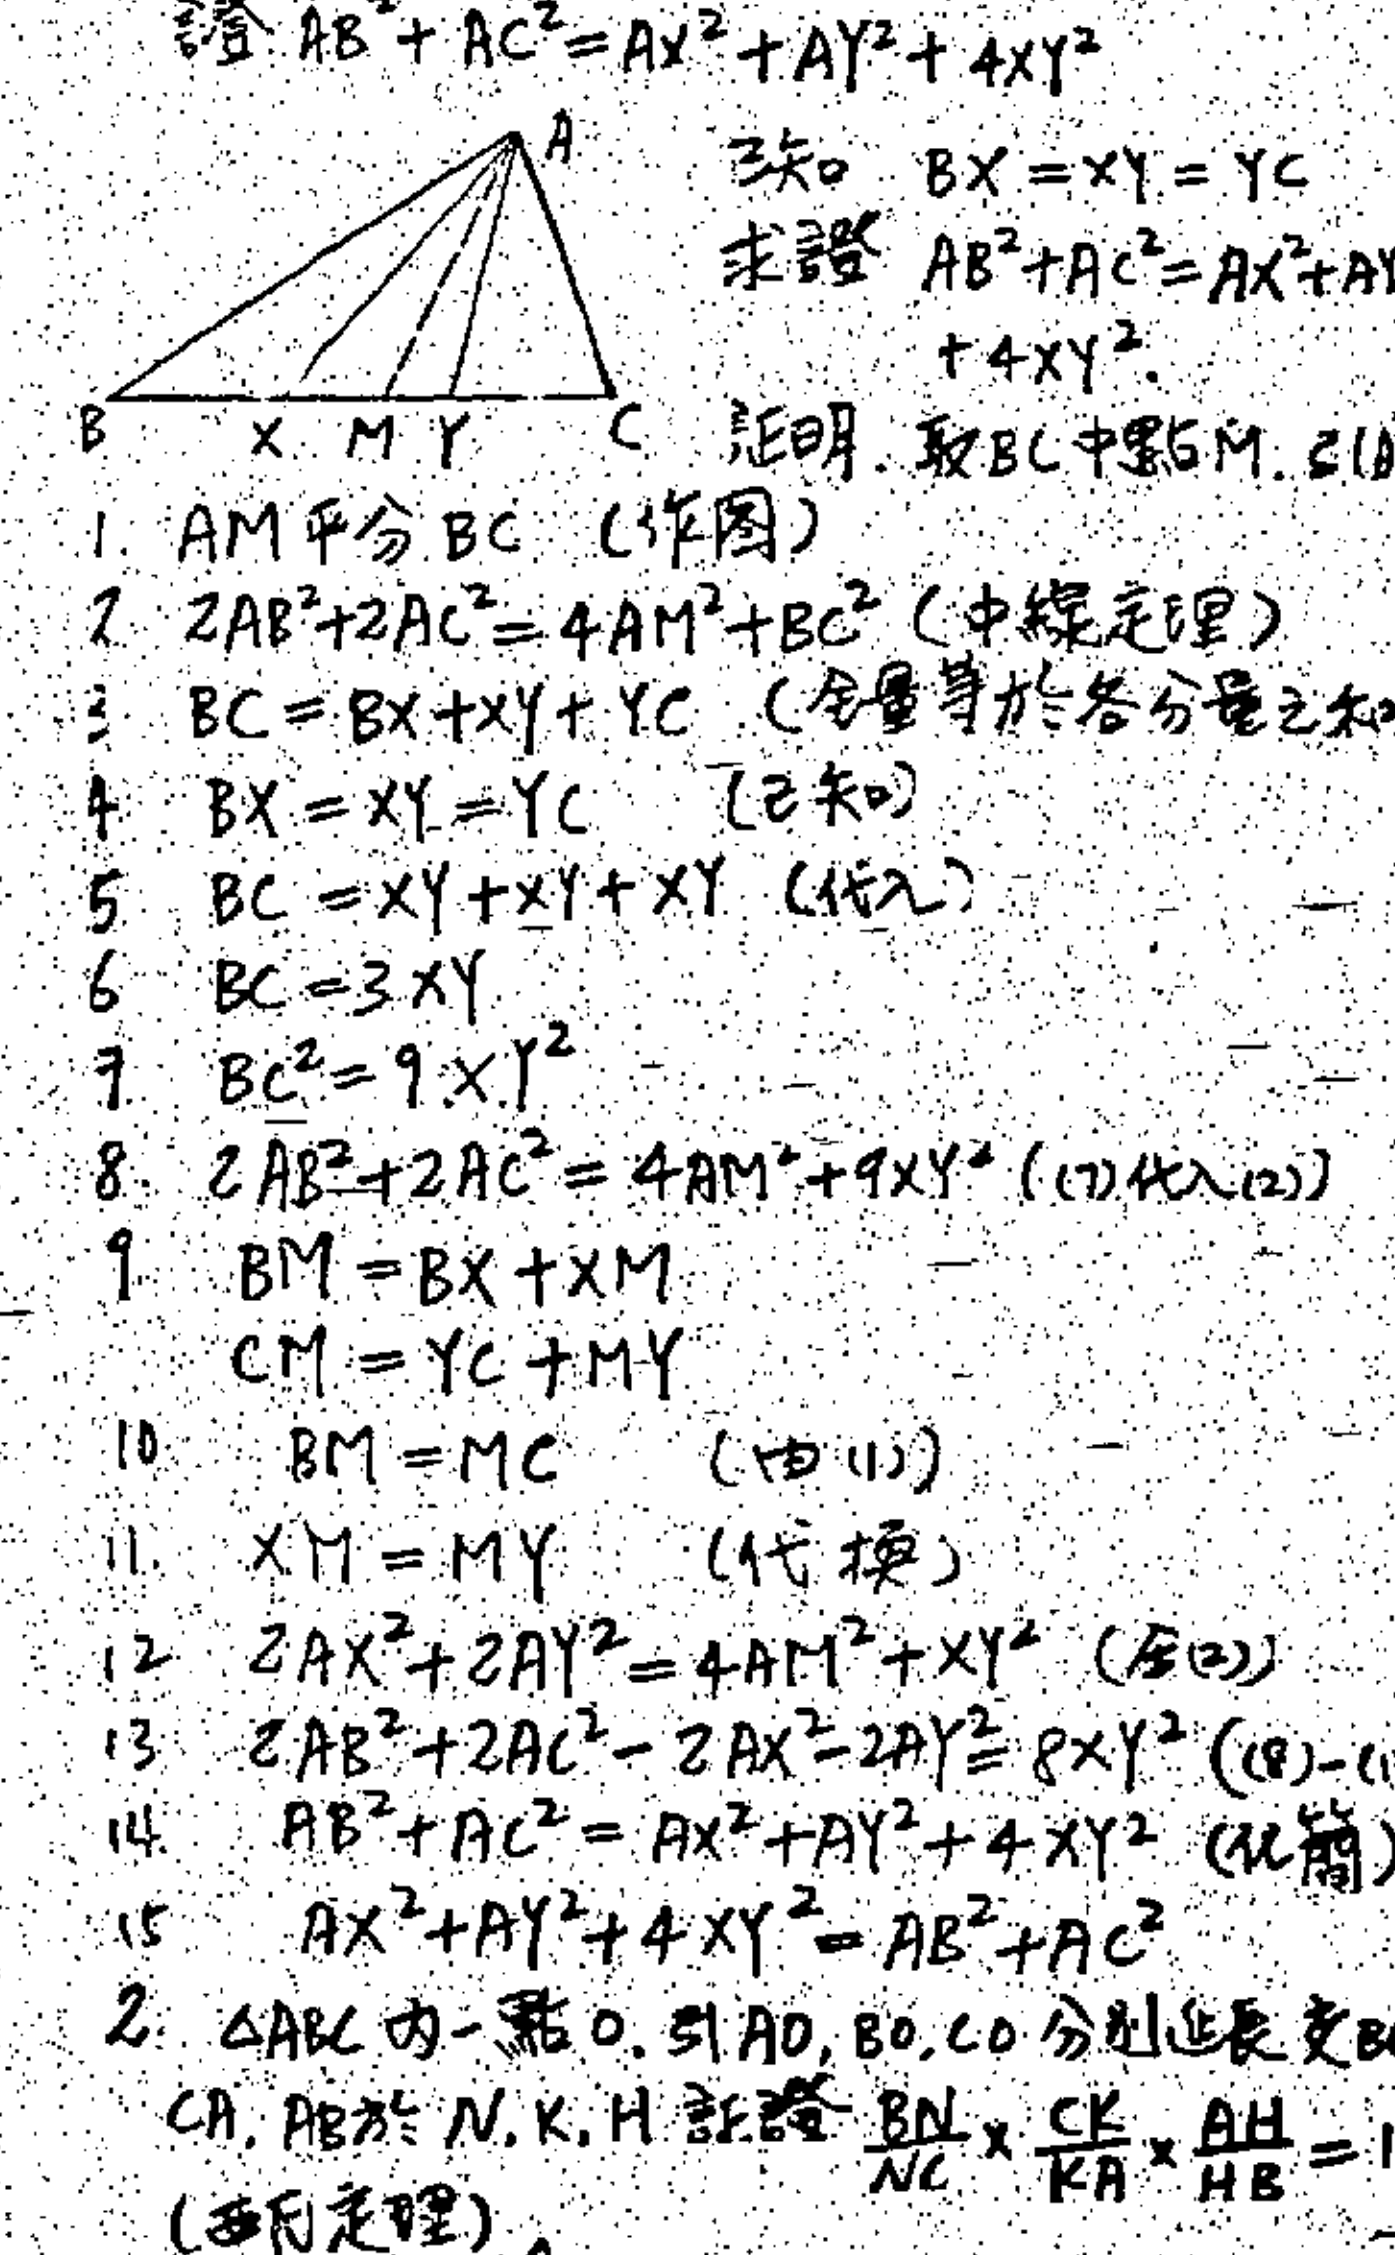 證 AB²+AC²=AX²+AY²+4XY²
A
B X M Y C
已知 BX=XY=YC
求證 AB²+AC²=AX²+AY
+4XY².
証明. 取BC中點M.
1. AM平分BC (作图)
2 2AB²+2AC²=4AM²+BC² (中線定理)
3 BC=BX+XY+YC (全量等於各分量之和
4 BX=XY=YC (已知)
5 BC=XY+XY+XY (代入)
6 BC=3XY
7. BC²=9XY²
8. 2AB²+2AC²=4AM²+9XY² ((7)代入(2))
9 BM=BX+XM
CM=YC+MY
10 BM=MC (由(1))
11. XM=MY (代換)
12 2AX²+2AY²=4AM²+XY² (仝(2))
13 2AB²+2AC²-2AX²-2AY²=8XY² ((8)-(1
14. AB²+AC²=AX²+AY²+4XY² (化簡)
15 AX²+AY²+4XY²=AB²+AC²
2. △ABC內一點O.引AO,BO,CO分別延長交B
CA, AB於N,K,H 試證 BN/NC × CK/KA × AH/HB = 1
(西瓦定理)